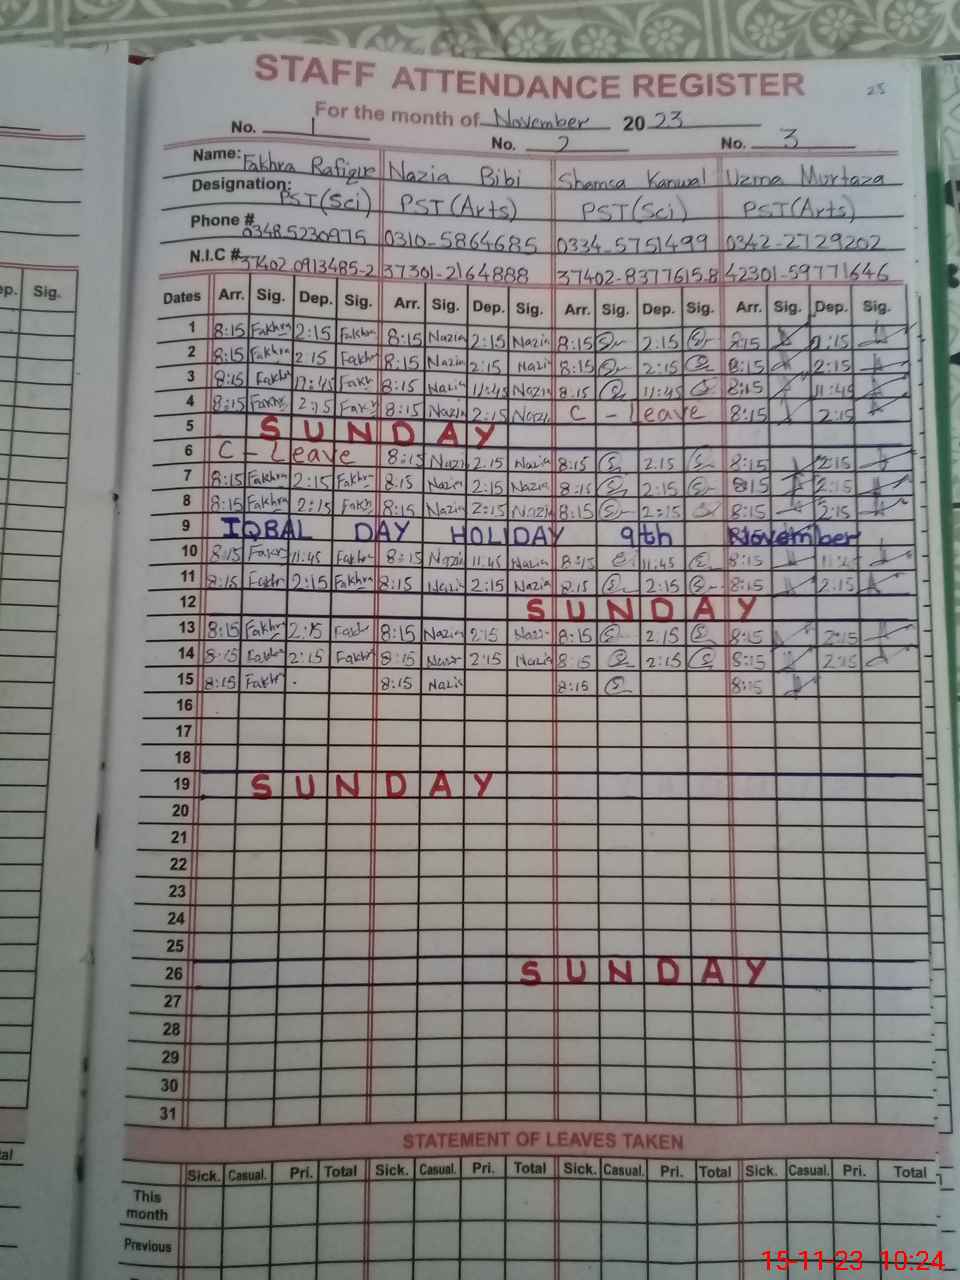 STAFF ATTENDANCE REGISTER 25
For the month of November 2023
No. 1 No. 2 No. 3
Name: Fakhra Rafique Nazia Bibi Shamsa Kanwal Uzma Murtaza
Designation: PST(Sci) PST(Arts) PST(Sci) PST(Arts)
Phone # 03485230975 0310-5864685 0334-5751499 0342-2729202
N.I.C # 37402.0913485-2 37301-2164888 37402-8377615.8 42301-59771646
ep. Sig. Dates Arr. Sig. Dep. Sig. Arr. Sig. Dep. Sig. Arr. Sig. Dep. Sig. Arr. Sig. Dep. Sig.
1 8:15 Fakhra 2:15 Fakhra 8:15 Nazia 2:15 Nazia 8:15 2:15 8:15 2:15
2 8:15 Fakhra 2:15 Fakhr 8:15 Nazia 2:15 Nazia 8:15 2:15 8:15 2:15
3 8:15 Fakhr 11:45 Fakhr 8:15 Nazia 11:45 Nazia 8:15 11:45 8:15 11:45
4 8:15 Fakhr 2:15 Fakhr 8:15 Nazia 2:15 Nazia C - Leave 8:15 2:15
5 SUNDAY
6 C - Leave 8:15 Nazia 2:15 Nazia 8:15 2:15 8:15 2:15
7 8:15 Fakhra 2:15 Fakhra 8:15 Nazia 2:15 Nazia 8:15 2:15 8:15 2:15
8 8:15 Fakhra 2:15 Fakhr 8:15 Nazia 2:15 Nazia 8:15 2:15 8:15 2:15
9 IQBAL DAY HOLIDAY 9th November
10 8:15 Fakhr 11:45 Fakhra 8:15 Nazia 11:45 Nazia 8:15 11:45 8:15 11:45
11 8:15 Fakhr 2:15 Fakhra 8:15 Nazia 2:15 Nazia 8:15 2:15 8:15 2:15
12 SUNDAY
13 8:15 Fakhra 2:15 Fakhr 8:15 Nazia 2:15 Nazia 8:15 2:15 8:15 2:15
14 8:15 Fakhra 2:15 Fakhra 8:15 Nazia 2:15 Nazia 8:15 2:15 8:15 2:15
15 8:15 Fakhr 8:15 Nazia 8:15 8:15
16
17
18
19 SUNDAY
20
21
22
23
24
25
26 SUNDAY
27
28
29
30
31
STATEMENT OF LEAVES TAKEN
Sick. Casual. Pri. Total Sick. Casual. Pri. Total Sick. Casual. Pri. Total Sick. Casual. Pri. Total
This month
Previous
15-11-23 10:24